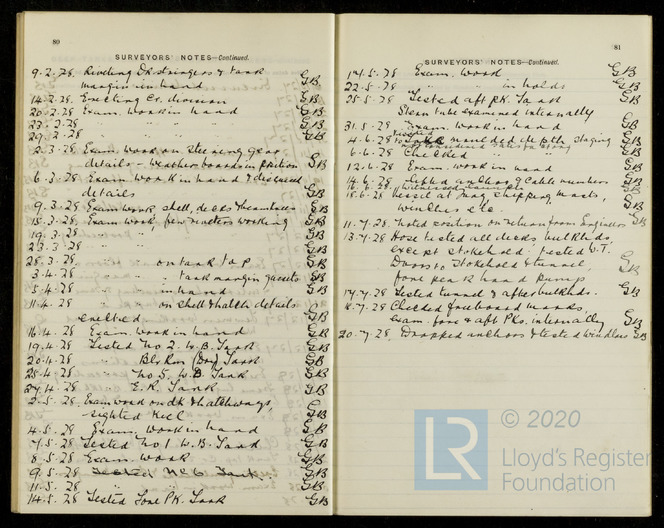 80
SURVEYORS' NOTES—Continued.
9.2.28 Riveting Dk stringers & tank GB
margin in hand
14.2.28 Erecting Cr. division GB
20.2.28 Exam. work in hand GB
23.2.28 " " " GB
29.2.28 " " " GB
2.3.28 Exam. work on steering gear
details - weatherboards in position GB
6.3.28 Exam work in hand & discussed
details GB
9.3.28 Exam work, shell, decks & beams GB
15.3.28 Exam work few reactors working GB
19.3.28 " " GB
23.3.28 " " GB
28.3.28 " " on tank top GB
3.4.28 " " tank margin gussets GB
5.4.28 " " in hand GB
11.4.28 " " on shell & hatch details
erected GB
16.4.28 Exam. work in hand GB
19.4.28 Tested No 2. W.B. Tank GB
20.4.28 " Blr Rm (Dry) Tank GB
25.4.28 " No 5. W.B. Tank GB
27.4.28 " E.R. Tank GB
2.5.28 Exam work on dk & hatchways,
sighted Keel GB
4.5.28 Exam. work in hand GB
7.5.28 Tested No 1 W.B. Tank GB
8.5.28 Exam. work GB
9.5.28 Tested No 6 Tank GB
11.5.28 " " GB
14.5.28 Tested Fore PK. Tank GB
81
SURVEYORS' NOTES—Continued.
17.5.28 Exam. work GB
22.5.28 " " in holds GB
25.5.28 Tested aft PK. Tank GB
Stern tube examined internally
31.5.28 Exam. work in hand GB
4.6.28 moulded depth, staging GB
6.6.28 Checked GB
12.6.28 Exam. work in hand GB
14.6.28 anchors & cable numbers GB
18.6.28 Vessel at Quay, shipping masts,
windlass etc. GB
11.7.28 Noted position on return from Engineers GB
13.7.28 Hose tested all decks, bulkheads
except stokehold: tested W.T.
Doors to Stokehold & tunnel,
fore peak hand pump GB
17.7.28 Tested tunnel & after bulkhds. GB
18.7.28 Checked freeboard marks,
Exam. fore & aft Pks. internally GB
20.7.28 Dropped anchors & tested windlass GB
LR
© 2020
Lloyd's Register
Foundation